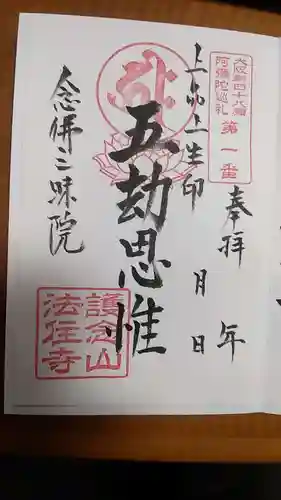 大阪新四十八願
阿彌陀巡礼 第一番
奉拝
年
月
日
上品上生印
五劫思惟
念佛三昧院
護念山
法住寺